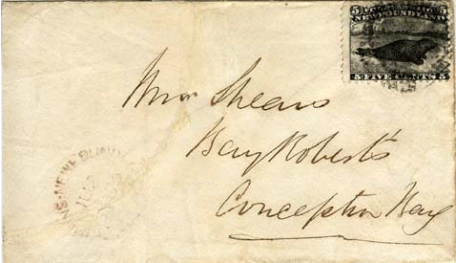 5 5
NEWFOUNDLAND
5 FIVE CENTS 5
Mrs Shears
Bay Roberts
Conception Bay